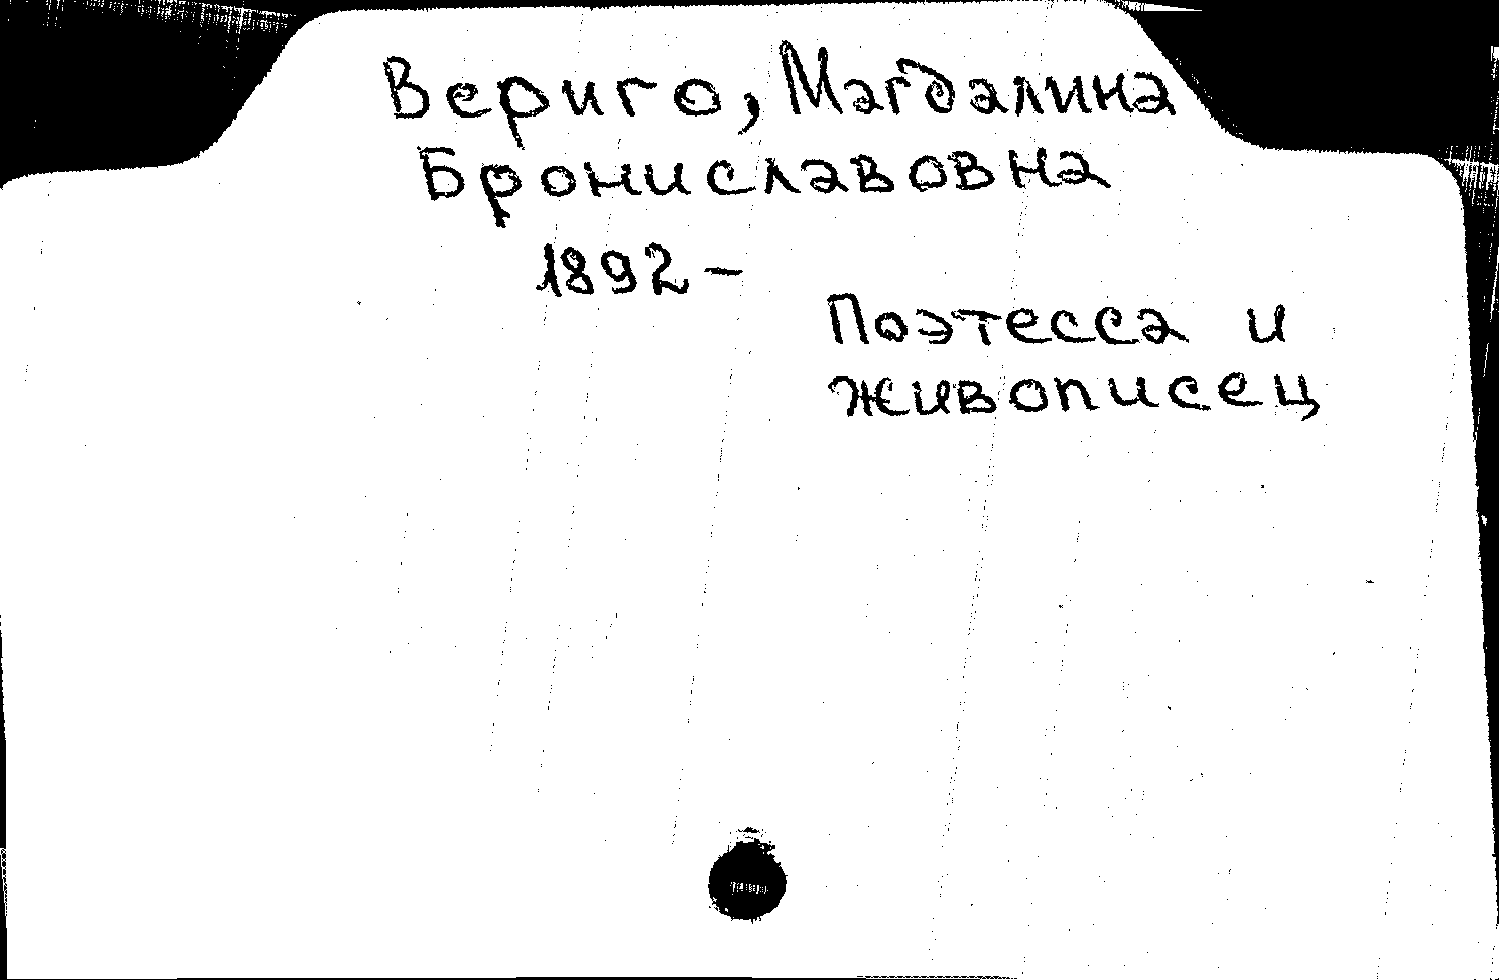 Вериго, Магдалина
Брониславовна
1892 –
Поэтесса и
живописец